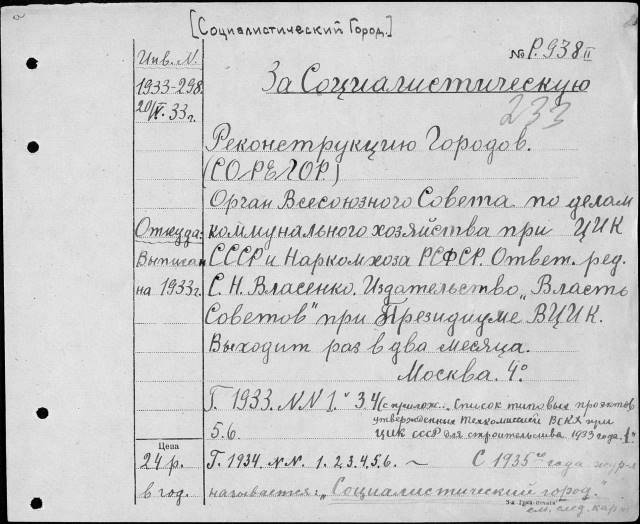 [Социалистический Город.]
Инв. N.
№ Р.938 II
1933-298.
За Социалистическую
20/IV.33г.
233
Реконструкцию Городов.
(СОРЕГОР.)
Орган Всесоюзного Совета по делам
Откуда: коммунального хозяйства при ЦИК
Выписан СССР и Наркомхоза РСФСР. Ответ. ред.
на 1933г. С. Н. Власенко. Издательство „Власть
Советов" при Президиуме ВЦИК.
Выходит раз в два месяца.
Москва. 4°.
Г. 1933. NN 1. 3.4 (с прилож.. Список типовых проектов
утвержденных техкомиссией ВСКХ при
5.6. ЦИК СССР для строительства 1933 года. 1."
Цена
24 р. Г. 1934. N.N. 1. 2. 3. 4. 5. 6. ~ С 1935 го года жур-л
в год. называется: „Социалистический город."
см. след. кар